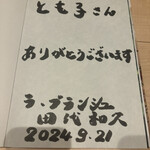 とも子さん
ありがとうございます
ラ・ブランシュ
田代和久
2024.9.21